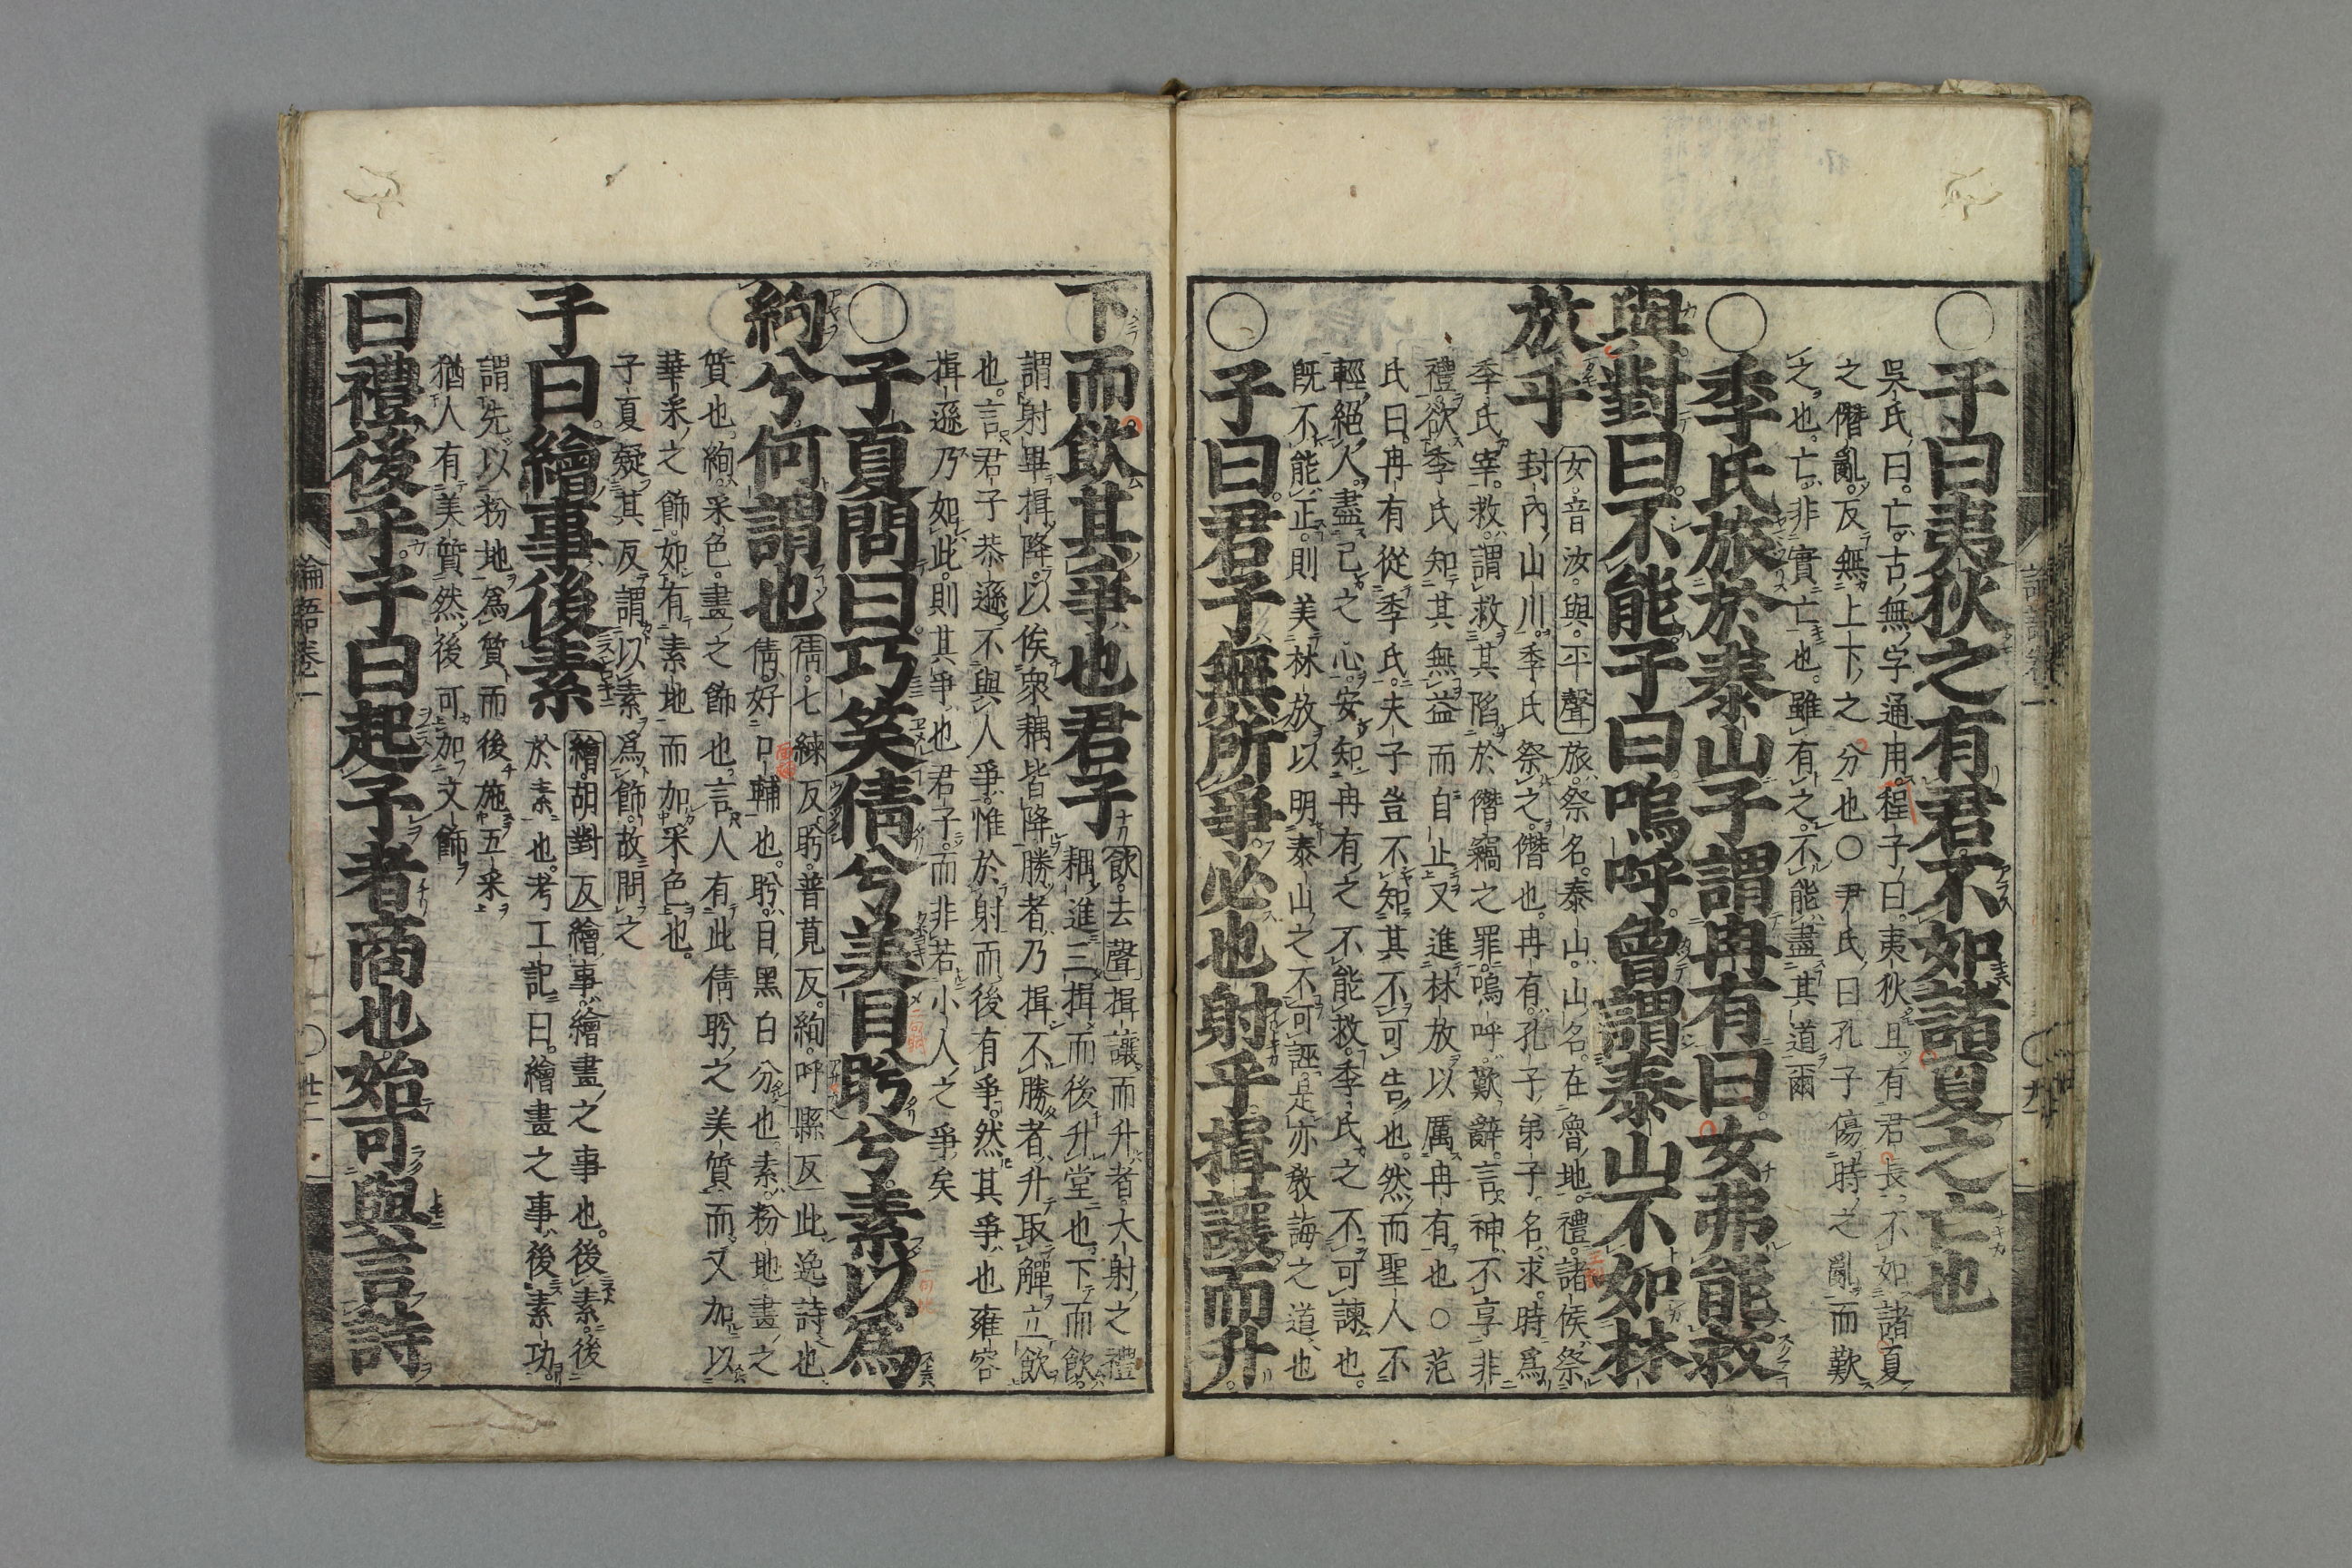 〇子曰夷狄之有君不如諸夏之亡也
吳氏曰亡古無字通用程子曰夷狄且有君長不如諸夏
之僭亂反無上下之分也〇尹氏曰孔子傷時之亂而歎
之也亡非實亡也雖有之不能盡其道爾
〇季氏旅於泰山子謂冉有曰女弗能救
與對曰不能子曰嗚呼曾謂泰山不如林
放乎
女音汝與平聲旅祭名泰山山名在魯地禮諸侯祭
封內山川季氏祭之僭也冉有孔子弟子名求時爲
季氏宰救謂救其陷於僭竊之罪嗚呼歎辭言神不享非
禮欲季氏知其無益而自止又進林放以厲冉有也〇范
氏曰冉有從季氏夫子豈不知其不可告也然而聖人不
輕絕人盡己之心安知冉有之不能救季氏之不可諫也
旣不能正則美林放以明泰山之不可誣是亦敎誨之道也
〇子曰君子無所爭必也射乎揖讓而升
下而飮其爭也君子
飮去聲揖讓而升者大射之禮
耦進三揖而後升堂也下而飮
謂射畢揖降以俟衆耦皆降勝者乃揖不勝者升取觶立飮
也言君子恭遜不與人爭惟於射而後有爭然其爭也雍容
揖遜乃如此則其爭也君子而非若小人之爭矣
〇子夏問曰巧笑倩兮美目盼兮素以爲
絢兮何謂也
倩七練反盼普莧反絢呼縣反此逸詩也
倩好口輔也盼目黑白分也素粉地畫之
質也絢采色畫之飾也言人有此倩盼之美質而又加以
華采之飾如有素地而加采色也
子夏疑其反謂以素爲飾故問之
子曰繪事後素
繪胡對反繪事繪畫之事也後素後
於素也考工記曰繪畫之事後素功
謂先以粉地爲質而後施五采
猶人有美質然後可加文飾
曰禮後乎子曰起予者商也始可與言詩
論語卷二
〇廿二